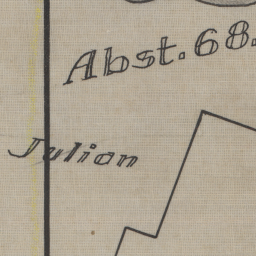 Abst. 68.
Julian